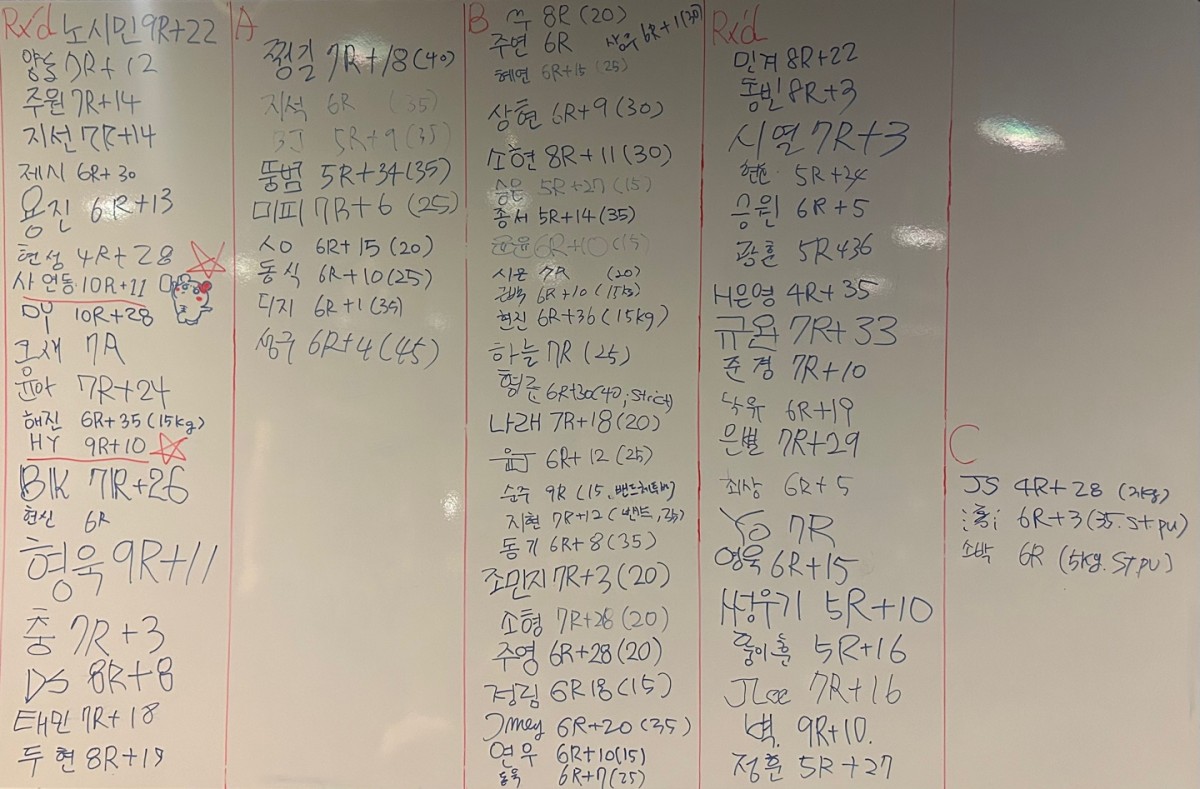 Rx'd 노시민 9R+22
양날 7R+12
주원 7R+14
지선 7R+14
제시 6R+30
용진 6R+13
현성 4R+28
사 언동 10R+11
DY 10R+28
웅재 7R
윤아 7R+24
해진 6R+35 (15kg)
HY 9R+10
BIK 7R+26
현신 6R
형욱 9R+11
충 7R+3
DS 8R+8
태민 7R+18
두현 8R+19
A
쩡길 7R+18 (40)
지석 6R (35)
BJ 5R+9 (35)
뚱범 5R+34 (35)
미피 7R+6 (25)
SO 6R+15 (20)
동식 6R+10 (25)
디지 6R+1 (35)
생구 6R+4 (45)
B
쑤 8R (20)
주연 6R
상유 6R+1 (30)
혜연 6R+15 (25)
상현 6R+9 (30)
소현 8R+11 (30)
승은 5R+27 (15)
종서 5R+14 (35)
6R+10 (15)
시은 7R (20)
6R+10 (15kg)
현진 6R+36 (15kg)
하늘 7R (25)
형준 6R+30 (40, strict)
나래 7R+18 (20)
윤J 6R+12 (25)
순주 9R (15,
지현 7R+12 (밴드,
동기 6R+8 (35)
조민지 7R+3 (20)
소형 7R+28 (20)
주영 6R+28 (20)
정림 6R 18 (15)
Jmey 6R+20 (35)
연우 6R+10 (15)
동욱 6R+7 (25)
Rx'd
민겨 8R+22
통빈 8R+3
시열 7R+3
5R+24
승원 6R+5
광훈 5R+36
H은영 4R+35
규완 7R+33
준경 7R+10
낙유 6R+19
은별 7R+29
최상 6R+5
YO 7R
영욱 6R+15
H성우기 5R+10
쭝이훈 5R+16
JLee 7R+16
벽. 9R+10.
정훈 5R+27
C
JS 4R+28
6R+3 (35. St. pu)
소박 6R (5kg. St pu)